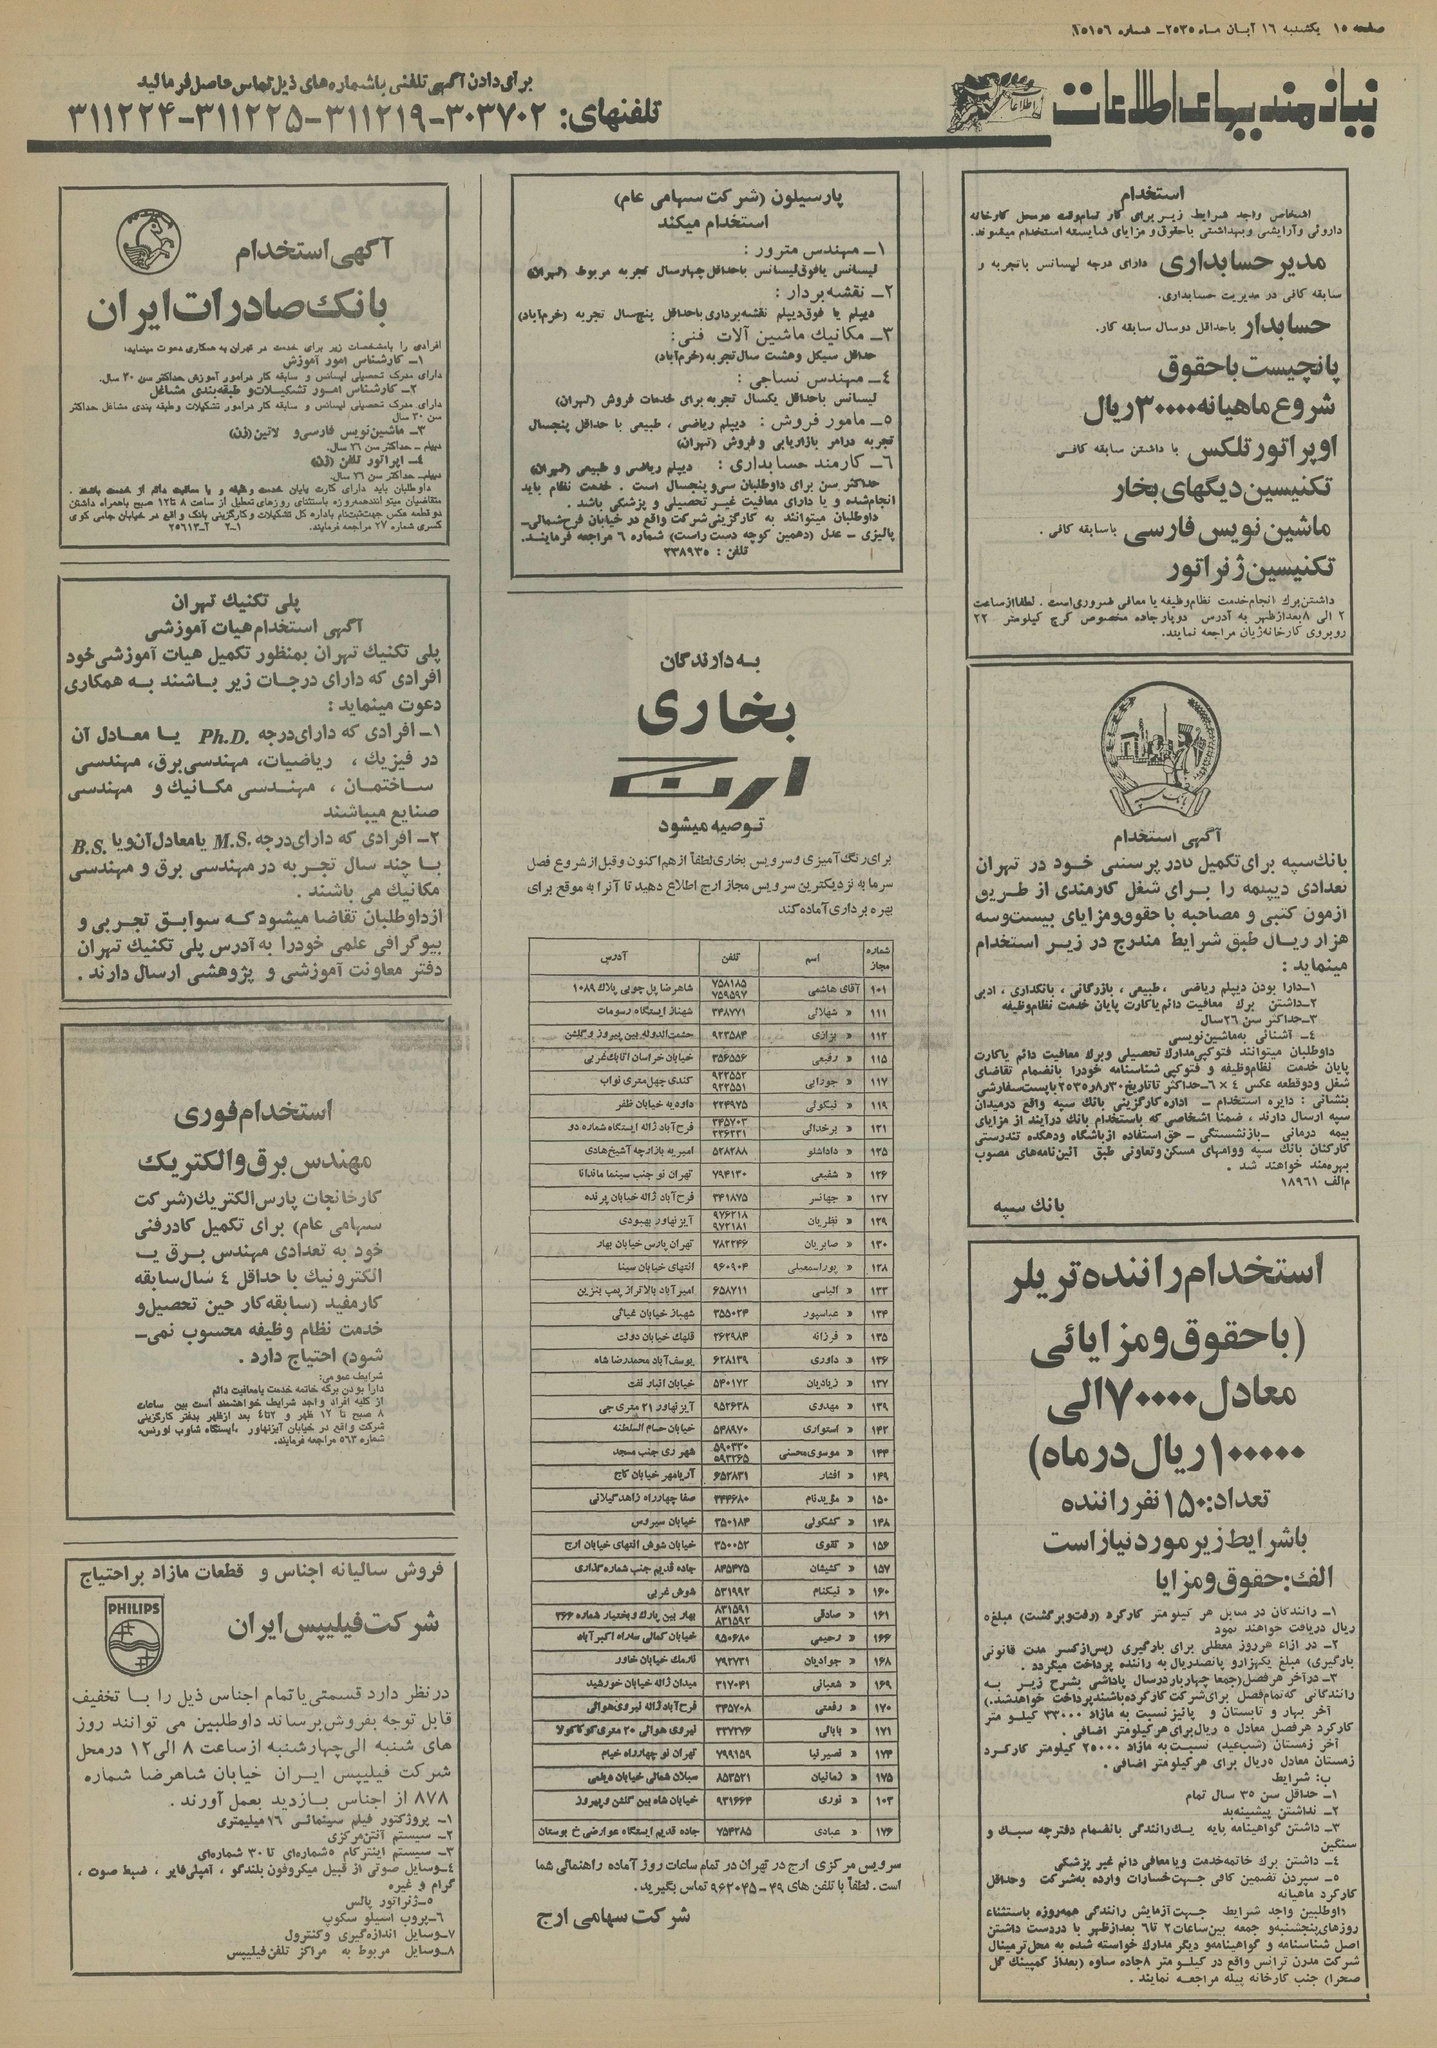 صفحه ۱۵ یکشنبه ۱۶ آبان ماه ۲۵۳۵ـ شماره ۱۵۱۵۶
نیازمندیهای اطلاعات
اطلاعات
برای دادن آگهی تلفنی باشماره‌های ذیل تماس حاصل فرمائید
تلفنهای: ۳۰۳۷۰۲-۳۱۱۲۱۹-۳۱۱۲۲۵-۳۱۱۲۲۴
استخدام
اشخاص واجد شرایط زیر برای کار تمام‌وقت در محل کارخانه
داروئی وآرایشی وبهداشتی باحقوق و مزایای شایسته استخدام میشوند.
مدیر حسابداری دارای درجه لیسانس باتجربه و
سابقه کافی در مدیریت حسابداری.
حسابدار باحداقل دوسال سابقه کار.
پانچیست باحقوق
شروع ماهیانه ۳۰۰۰۰ ریال
اوپراتور تلکس با داشتن سابقه کافی
تکنیسین دیگهای بخار
ماشین نویس فارسی باسابقه کافی.
تکنیسین ژنراتور
داشتن برك انجام خدمت نظام‌وظیفه یا معافی ضروری است. لطفا از ساعت
۲ الی ۸ بعدازظهر به آدرس دوپار جاده مخصوص کرج کیلومتر ۲۲
روبروی کارخانه ژیان مراجعه نمایند.
آگهی استخدام
بانك سپه برای تکمیل کادر پرسنلی خود در تهران
تعدادی دیپلمه را برای شغل کارمندی از طریق
آزمون کتبی و مصاحبه با حقوق و مزایای بیست‌وسه
هزار ریال طبق شرایط مندرج در زیر استخدام
مینماید:
۱ـ دارا بودن دیپلم ریاضی، طبیعی، بازرگانی، بانکداری، ادبی
۲ـ داشتن برك معافیت دائم یا کارت پایان خدمت نظام‌وظیفه
۳ـ حداکثر سن ۲۶ سال
۴ـ آشنائی به ماشین‌نویسی
داوطلبان میتوانند فتوکپی مدارك تحصیلی وبرك معافیت دائم یا کارت
پایان خدمت نظام‌وظیفه و فتوکپی شناسنامه خودرا بانضمام تقاضای
شغل ودوقطعه عکس ۴×۶ـ حداکثر تا تاریخ ۲۵۳۵/۸/۳۰ با پست سفارشی
بنشانی: دایره استخدام ـ اداره کارگزینی بانك سپه واقع درمیدان
سپه ارسال دارند، ضمنا اشخاصی که باستخدام بانك درآیند از مزایای
بیمه درمانی ـ بازنشستگی ـ حق استفاده از باشگاه ودهکده تندرستی
کارکنان بانك سپه ووامهای مسکن وتعاونی طبق آئین‌نامه‌های مصوب
بهره‌مند خواهند شد.
م الف ۱۸۹۶۱
بانك سپه
استخدام راننده تریلر
(باحقوق و مزایائی
معادل ۷۰۰۰۰ الی
۱۰۰۰۰۰ ریال در ماه)
تعداد: ۱۵۰ نفر راننده
باشرایط زیر مورد نیاز است
الف: حقوق و مزایا
۱ـ رانندگان در مقابل هر کیلومتر کارکرد (رفت‌وبرگشت) مبلغ ۵
ریال دریافت خواهند نمود
۲ـ در ازاء هرروز معطلی برای بارگیری (پس از کسر مدت قانونی
بارگیری) مبلغ یکهزارو پانصدریال به راننده پرداخت میگردد.
۳ـ در آخر هر فصل (جمعا چهاربار درسال پاداشی بشرح زیر به
رانندگانی که تمام فصل برای شرکت کار کرده باشند پرداخت خواهد شد.)
آخر بهار و تابستان و پائیز نسبت به مازاد ۳۳۰۰۰ کیلومتر
کارکرد هر فصل معادل ۵ ریال برای هر کیلومتر اضافی.
آخر زمستان (شب عید) نسبت به مازاد ۲۵۰۰۰ کیلومتر کارکرد
زمستان معادل ۵ ریال برای هر کیلومتر اضافی.
ب: شرایط
۱ـ حداقل سن ۳۵ سال تمام
۲ـ نداشتن پیشینه بد
۳ـ داشتن گواهینامه پایه یك رانندگی بانضمام دفترچه سبك و
سنگین
۴ـ داشتن برك خاتمه خدمت ویا معافی دائم غیر پزشکی
۵ـ سپردن تضمین کافی جهت خسارات وارده به شرکت وحداقل
کارکرد ماهیانه
داوطلبین واجد شرایط جهت آزمایش رانندگی همه‌روزه باستثناء
روزهای پنجشنبه و جمعه بین ساعات ۲ تا ۶ بعدازظهر با دردست داشتن
اصل شناسنامه و گواهینامه و دیگر مدارك خواسته شده به محل ترمینال
شرکت مدرن ترانس واقع در کیلومتر ۸ جاده ساوه (بعداز کمپینك گل
صحرا) جنب کارخانه پیله مراجعه نمایند.
پارسیلون (شرکت سهامی عام)
استخدام میکند
۱ـ مهندس مترور:
لیسانس یا فوق لیسانس باحداقل چهارسال تجربه مربوط (تهران)
۲ـ نقشه بردار:
دیپلم یا فوق‌دیپلم نقشه‌برداری باحداقل پنج‌سال تجربه (خرم‌آباد)
۳ـ مکانیك ماشین آلات فنی:
حداقل سیکل وهشت سال تجربه (خرم‌آباد)
۴ـ مهندس نساجی:
لیسانس باحداقل یکسال تجربه برای خدمات فروش (تهران)
۵ـ مامور فروش: دیپلم ریاضی، طبیعی با حداقل پنجسال
تجربه درامر بازاریابی و فروش (تهران)
۶ـ کارمند حسابداری: دیپلم ریاضی و طبیعی (تهران)
حداکثر سن برای داوطلبان سی‌وپنجسال است. خدمت نظام باید
انجام‌شده و یا دارای معافیت غیر تحصیلی و پزشکی باشد.
داوطلبان میتوانند به کارگزینی شرکت واقع در خیابان فرح شمالی ـ
پالیزی ـ عدل (دهمین کوچه دست راست) شماره ۶ مراجعه فرمایند.
تلفن: ۲۳۸۹۳۵
به دارندگان
بخاری
ارج
توصیه میشود
برای رنگ آمیزی وسرویس بخاری لطفاً از هم‌اکنون وقبل از شروع فصل
سرما به نزدیکترین سرویس مجاز ارج اطلاع دهید تا آنرا به موقع برای
بهره برداری آماده کند
شماره مجاز | اسم | تلفن | آدرس
۱۰۱ آقای هاشمی ۷۵۸۱۸۵ ۷۵۹۵۹۷ شاهرضا پل چوبی پلاك ۱۰۸۹
۱۱۱ » شهلائی ۳۴۸۷۷۱ شهناز ایستگاه رسومات
۱۱۲ » بزازی ۹۲۳۵۸۴ حشمت‌الدوله بین پیروز و گلشن
۱۱۵ » رفیعی ۳۵۶۵۵۶ خیابان خراسان اتابك غربی
۱۱۷ » جورابی ۹۲۲۵۵۲ ۹۲۲۵۵۱ کندی چهل متری نواب
۱۱۹ » نیکوئی ۲۲۴۹۷۵ داودیه خیابان ظفر
۱۲۱ » برخدائی ۳۴۵۷۰۳ ۳۳۶۲۳۱ فرح‌آباد ژاله ایستگاه شماره دو
۱۲۵ » داداشلو ۵۲۸۲۸۸ امیریه بازارچه آشیخ هادی
۱۲۶ » شفیعی ۷۹۴۱۳۰ تهران نو جنب سینما ماندانا
۱۲۷ » جهانسر ۳۴۱۸۷۵ فرح‌آباد ژاله خیابان پرنده
۱۲۹ » نظریان ۹۷۶۲۱۸ ۹۷۲۱۸۱ آیزنهاور بهبودی
۱۳۰ » صابریان ۷۸۲۲۴۶ تهران پارس خیابان بهار
۱۲۸ » پوراسمعیلی ۹۶۰۹۰۴ انتهای خیابان سینا
۱۳۳ » الیاسی ۶۵۸۷۱۱ امیرآباد بالاتر از پمپ بنزین
۱۳۴ » عباسپور ۳۵۵۰۲۴ شهباز خیابان غیاثی
۱۳۵ » فرزانه ۲۶۲۹۸۴ قلهك خیابان دولت
۱۳۶ » داوری ۶۲۸۱۳۹ یوسف‌آباد محمدرضا شاه
۱۳۷ » زیادیان ۵۴۰۱۷۳ خیابان انبار نفت
۱۳۹ » مهدوی ۹۵۲۶۳۸ آیزنهاور ۲۱ متری جی
۱۴۲ » استواری ۵۴۸۹۷۰ خیابان حسام السلطنه
۱۴۴ » موسوی محسنی ۵۹۰۳۳۰ ۵۹۳۲۶۵ شهر ری جنب مسجد
۱۴۹ » افشار ۶۵۲۸۳۱ آریامهر خیابان کاج
۱۵۰ » مؤیدنام ۳۴۴۶۸۰ صفا چهارراه زاهد گیلانی
۱۴۸ » کشکولی ۳۵۰۱۸۴ خیابان سیروس
۱۵۶ » تقوی ۳۵۰۰۵۲ خیابان شوش انتهای خیابان ارج
۱۵۷ » کشیشان ۸۴۵۴۷۵ جاده قدیم جنب شماره گذاری
۱۶۰ » نیکنام ۵۳۱۹۹۲ شوش غربی
۱۶۱ » صادقی ۸۳۱۵۹۱ ۸۳۱۵۹۲ بهار بین پارك و بختیار شماره ۳۶۶
۱۶۶ » رحیمی ۹۵۰۶۸۰ خیابان کمالی سه‌راه اکبرآباد
۱۶۸ » جوادیان ۷۹۲۷۳۱ نارمك خیابان خاور
۱۶۹ » شعبانی ۳۱۷۰۴۱ میدان ژاله خیابان خورشید
۱۷۰ » رفعتی ۳۴۵۷۰۸ فرح‌آباد ژاله نیروی هوائی
۱۷۱ » بابائی ۳۳۷۲۷۶ نیروی هوائی ۲۰ متری کوکاکولا
۱۷۴ » نصیرنیا ۷۹۹۱۵۹ تهران نو چهارراه خیام
۱۷۵ » زمانیان ۸۵۳۵۲۱ سبلان شمالی خیابان دیلمی
۱۰۳ » نوری ۹۳۱۶۶۴ خیابان شاه بین گلشن و پیروز
۱۷۶ » عبادی ۷۵۴۲۸۵ جاده قدیم ایستگاه عوارضی خ بوستان
سرویس مرکزی ارج در تهران در تمام ساعات روز آماده راهنمائی شما
است. لطفاً با تلفن های ۴۹-۹۶۲۰۴۵ تماس بگیرید.
شرکت سهامی ارج
آگهی استخدام
بانك صادرات ایران
افرادی را بامشخصات زیر برای خدمت در تهران به همکاری دعوت مینماید:
۱ـ کارشناس امور آموزش
دارای مدرك تحصیلی لیسانس و سابقه کار در امور آموزش حداکثر سن ۳۰ سال.
۲ـ کارشناس امور تشکیلات و طبقه‌بندی مشاغل
دارای مدرك تحصیلی لیسانس و سابقه کار درامور تشکیلات وطبقه بندی مشاغل حداکثر
سن ۳۰ سال
۳ـ ماشین‌نویس فارسی و لاتین (زن)
دیپلم ـ حداکثر سن ۲۶ سال.
۴ـ اپراتور تلفن (زن)
دیپلم ـ حداکثر سن ۲۶ سال.
داوطلبان باید دارای کارت پایان خدمت وظیفه و یا معافیت دائم از خدمت باشند.
متقاضیان میتوانند همه‌روزه باستثنای روزهای تعطیل از ساعت ۸ تا ۱۲ صبح باهمراه داشتن
دو قطعه عکس جهت ثبت‌نام باداره کل تشکیلات و کارگزینی بانك واقع در خیابان جامی کوی
کسری شماره ۲۷ مراجعه فرمایند. ۱ـ۲ آـ۲۵۶۱۳
پلی تکنیك تهران
آگهی استخدام هیات آموزشی
پلی تکنیك تهران بمنظور تکمیل هیات آموزشی خود
افرادی که دارای درجات زیر باشند به همکاری
دعوت مینماید:
۱ـ افرادی که دارای درجه Ph.D. یا معادل آن
در فیزیك، ریاضیات، مهندسی برق، مهندسی
ساختمان، مهندسی مکانیك و مهندسی
صنایع میباشند
۲ـ افرادی که دارای درجه M.S. یا معادل آن ویا B.S.
با چند سال تجربه در مهندسی برق و مهندسی
مکانیك می باشند.
از داوطلبان تقاضا میشود که سوابق تجربی و
بیوگرافی علمی خودرا به آدرس پلی تکنیك تهران
دفتر معاونت آموزشی و پژوهشی ارسال دارند.
استخدام فوری
مهندس برق والکتریك
کارخانجات پارس الکتریك (شرکت
سهامی عام) برای تکمیل کادر فنی
خود به تعدادی مهندس برق یا
الکترونیك با حداقل ۴ سال سابقه
کار مفید (سابقه کار حین تحصیل و
خدمت نظام وظیفه محسوب نمی‌ـ
شود) احتیاج دارد.
شرایط عمومی:
دارا بودن برگه خاتمه خدمت یا معافیت دائم
از کلیه افراد واجد شرایط خواهشمند است بین ساعات
۸ صبح تا ۱۲ ظهر و ۲ تا ۴ بعد ازظهر بدفتر کارگزینی
شرکت واقع در خیابان آیزنهاور، ایستگاه شاوب لورنس،
شماره ۵۶۳ مراجعه فرمایند.
فروش سالیانه اجناس و قطعات مازاد بر احتیاج
PHILIPS
شرکت فیلیپس ایران
در نظر دارد قسمتی یا تمام اجناس ذیل را با تخفیف
قابل توجه بفروش برساند داوطلبین می توانند روز
های شنبه الی چهارشنبه از ساعت ۸ الی ۱۲ درمحل
شرکت فیلیپس ایران خیابان شاهرضا شماره
۸۷۸ از اجناس بازدید بعمل آورند.
۱ـ پروژکتور فیلم سینمائی ۱۶ میلیمتری
۲ـ سیستم آنتن مرکزی
۳ـ سیستم اینترکام ۵ شماره‌ای تا ۳۰ شماره‌ای
۴ـ وسایل صوتی از قبیل میکروفون بلندگو، آمپلی‌فایر، ضبط صوت،
گرام و غیره
۵ـ ژنراتور پالس
۶ـ پروب اسیلو سکوپ
۷ـ وسایل اندازه‌گیری وکنترول
۸ـ وسایل مربوط به مراکز تلفن فیلیپس